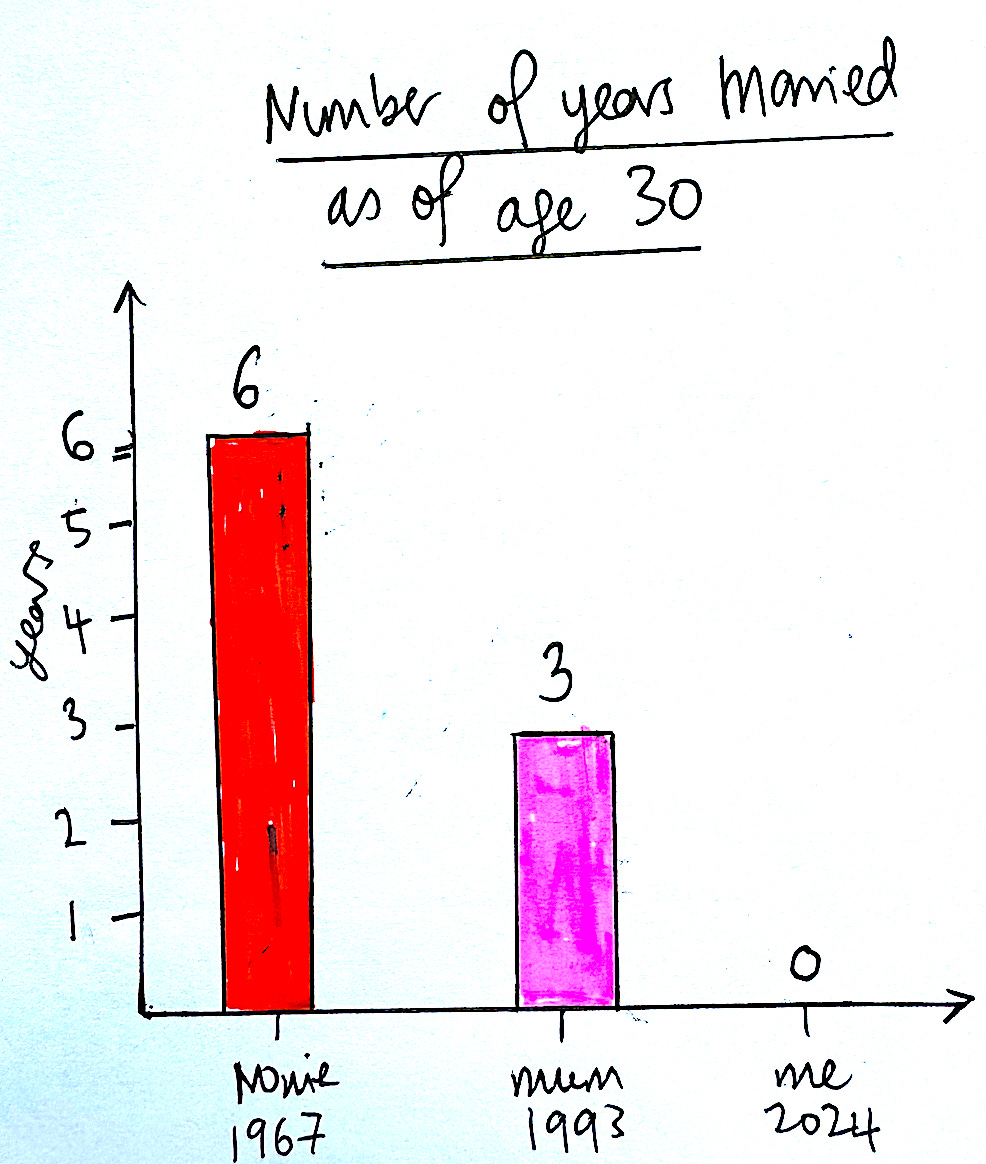 Number of years married
as of age 30
6
6
5
years
4
3
3
2
1
0
Nonie mum me
1967 1993 2024